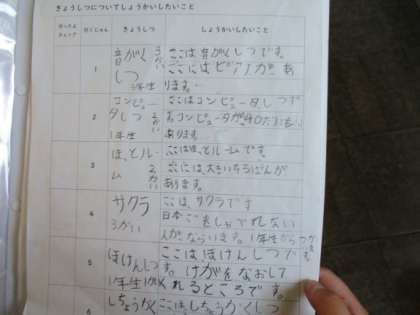 きょうしつについてしょうかいしたいこと
行くじゅん
きょうしつ
しょうかいしたいこと
1
音がくしつ
1年生
ここは音がくしつです。
ここにはピアノがあ
ります。
2
コンピュータしつ
1年生
ここはコンピュータしつで
す。コンピュータが40だい
あります
3
ほっとルーム
2かい
ここはほっとルームです。
ここには、大きい
あります。
4
サクラ
3がい
ここは、サクラです
日本ごをしゃべれない
人がならいます。1年生から
5
ほけんしつ
1年生1かい
ここはほけんしつで
す。けがをなおして
くれるところです。
6
しちょうかく
ここはしちょうかくしつ